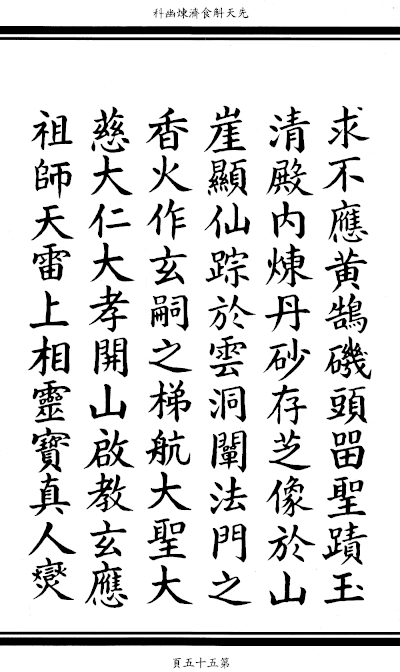 先天斛食濟煉幽科
求不應黃鵠磯頭畱聖蹟玉
清殿内煉丹砂存芝像於山
崖顯仙踪於雲洞闡法門之
香火作玄嗣之梯航大聖大
慈大仁大孝開山啟教玄應
祖師天雷上相靈寶真人爕
第五十五頁